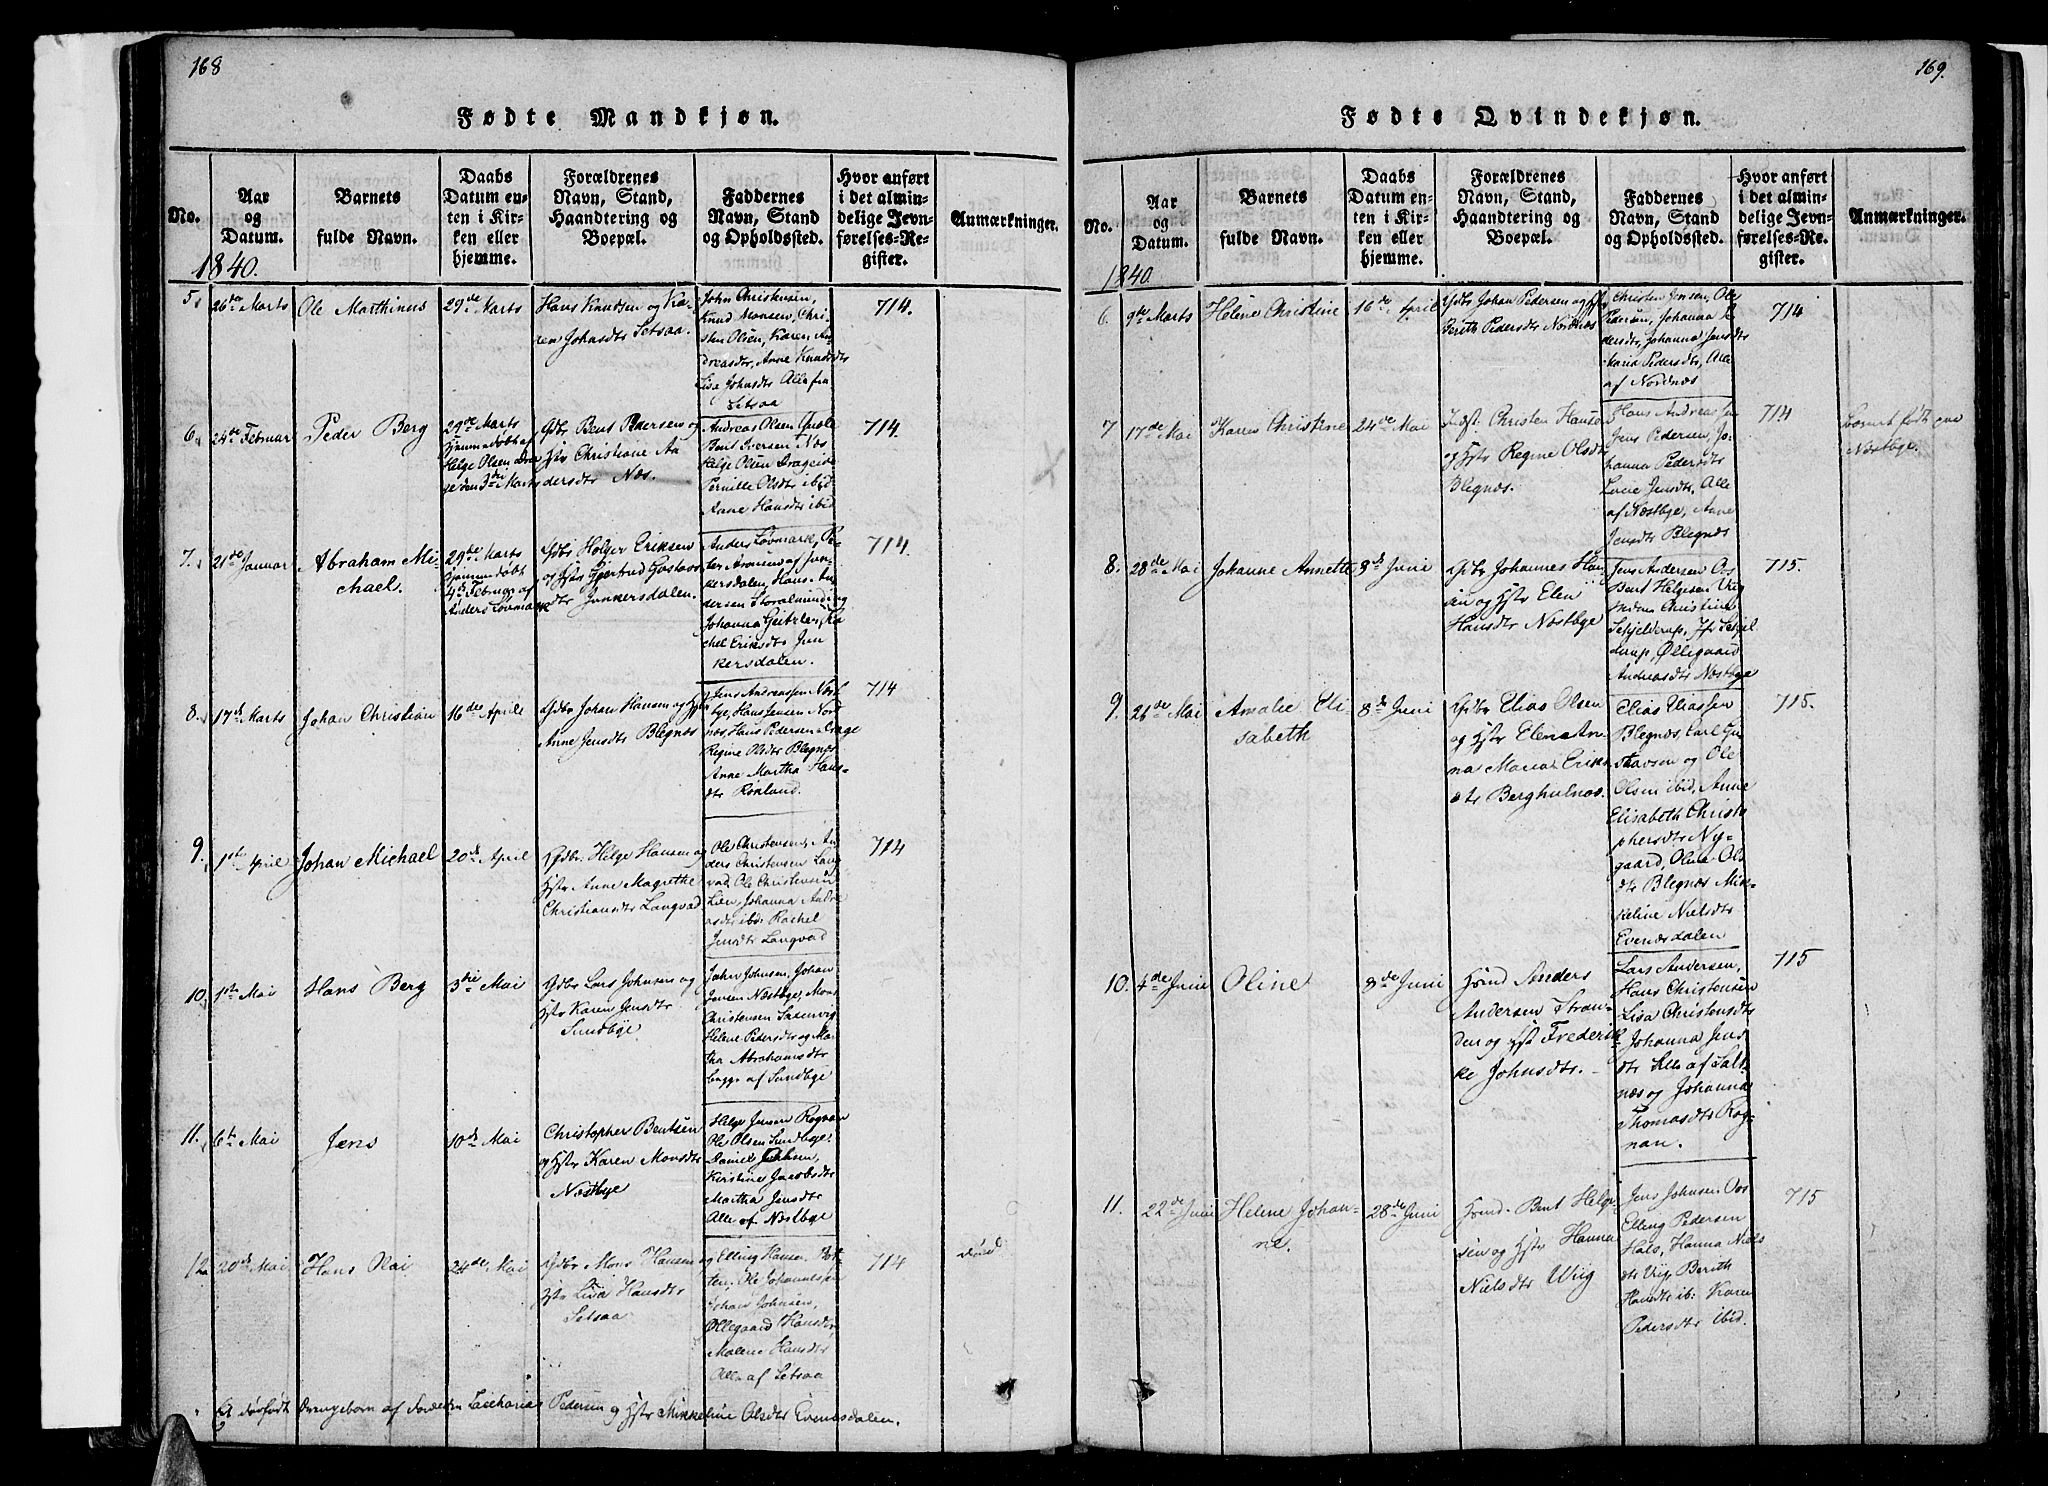 168
Fødte Mandkjøn.
No.
Aar
og
Datum.
Barnets
fulde Navn.
Daabs
Datum en-
ten i Kir-
ken eller
hjemme.
Forældrenes
Navn, Stand,
Haandtering og
Boepæl.
Faddernes
Navn, Stand
og Opholdssted.
Hvor anført
i det almin-
delige Jevn-
førelses-Re-
gister.
Anmærkninger.
1840.
5.
26de Marts
Ole Matthinus
29de Marts
Hans Knudsen og Ka-
ren Johnsdtr Setsaa.
John Christensen,
Knud Monsen, Chri-
sten Olsen, Karen An-
dreasdtr, Anne Knudsdtr
Lisa Johnsdtr Alle fra
Setsaa
714.
6.
24de Februar
Peder Berg
29de Marts
Hjemmedøbt af
Helge Olsen
den 3die Marts
Gdbr Bent Pedersen og
Hstr Christiane An
dersdtr Næs.
Andreas Olsen
Bent Iversen Næs
Helge Olsen Drageide
Pernille Olsdtr ibid
Anne Hansdtr ibid
714.
7.
21de Januar
Abraham Mi-
chael.
29de Marts
hjemmedøbt
4de Februar af
Anders Løvmark
Gdbr Holger Eriksen
og Hstr Gjertrud Gustavs
dtr Junkersdalen.
Anders Løvmark, Pe-
ter og Jun-
kersdalen, Hans An
dersen Storalminding
Johanna
chel Eriksdtr Jun
kersdalen.
714.
8.
17de Marts
Johan Christian
16de Aprile
Gdbr Johan Hansen og Hstr
Anne Jensdtr Blegnæs
Jens Andreassen Næst-
bye, Hans Jensen Nord
næs, Hans Pedersen
Regine Olsdtr Blegnæs
Anne Martha Hans-
dtr
714
9.
1ste April
Johan Michael
20de April
Gdbr. Helge Hansen og
Hstr Anne Magrethe
Christiansdtr Langvad
Ole Christensen, An
ders Christensen Lang
vad, Ole Christensen
Lien, Johanna Andre
asdtr ibd: Rachel
Jensdtr Langvad
714
10.
1ste Mai
Hans Berg
3die Mai
Gdbr Lars Johnsen og
Hstr Karen Jensdtr
Sundbye
John Johnsen, Johan
Jensen Næstbye, Mons
Christensen Saxenvig
Helene Pedersdtr og Mar-
tha Abrahamsdtr
begge af Sundbye
11.
6te Mai
Jens
10de Mai
Christopher Bentsen
og Hstr Karen Monsdtr
Næstbye
Helge Jensen Rognan
Ole Olsen Sundbye
Daniel
Kirstine Jacobsdtr
Martha Jensdtr
Alle af Næstbye
12
20de Mai
Hans Nai
24de Mai
Gdbr Mons Hansen og
Hstr Lisa Hansdtr
Setsaa
Elling Hansen
Ole Johannesen
Johan Johnsen,
Ollegaard Hansdtr
Malene Hansdtr
Alle af Setsaa
714
død
Et dødfødt Drengebarn af Zacharias Pedersen og Hstr Mikkeline Olsdtr Evenesdalen.
169.
Fødte Qvindekjøn.
No.
Aar
og
Datum.
Barnets
fulde Navn.
Daabs
Datum en-
ten i Kir-
ken eller
hjemme.
Forældrenes
Navn, Stand,
Haandtering og
Boepæl.
Faddernes
Navn, Stand
og Opholdssted.
Hvor anført
i det almin-
delige Jevn-
førelses-Re-
gister.
Anmærkninger.
1840.
6.
9de Marts
Helene Christine
16de April
Gdbr Johan Pedersen og Hstr
Berith Pedersdtr Nordnæs
Christen Jensen, Ole
Pedersen, Johanna P
dersdtr, Johanna Jensdtr
Maria Pedersdtr, Alle
af Nordnæs
714
7
17de Mai
Karen Christine
24de Mai
Indst. Christen Hansen
og Hstr Regine Olsdtr
Blegnæs.
Hans Andreas
Jens Pedersen, Jo-
hanna Pedersdtr
Jensdtr, Alle
af Næstbye, Anne
Jensdtr Blegnæs
714.
Barnet født paa
Næstbye.
8.
28de Mai
Johanne Annette
8de Juni
Gdbr Johannes Han
sen og Hstr Elen
Hansdtr Næstbye
Jens Andersen
Bent Helgesen
Christine
Schjelderup, Jfr Schjel
derup, Øllegaard
Andreasdtr Næstbye
715.
9.
26de Mai
Amalie Eli-
sabeth
8de Juni
Gdbr Elias Olsen
og Hstr Elen An
na Maria Eriks
dtr Berghulnæs.
Elias Eliassen
Blegnæs, Carl Gu
stavsen og Ole
Olsen ibid, Anne
Elisabeth Christo
phersdtr Ny-
gaard, Oline Ols
dtr Blegnæs Mik-
keline Nielsdtr
Evenesdalen
715.
10.
4de Juni
Oline
8de Juni
Hmd Anders
Andersen Stran-
den og Hst Frederik-
ke Johnsdtr.
Lars Andersen,
Hans Christensen
Lisa Christensdtr
Johanna Jens
dtr Alle af Salt
næs og Johanna
Thomasdtr Rog-
nan.
715
11.
22de Juni
Helene Johan-
ne.
28de Juni
Hmd. Bent Helge-
sen og Hstr Hanna
Nielsdtr Wiig
Jens Johnsen
Elling Pedersen
Hals, Hanna Niels
dtr Viig, Berith
Hansdtr ib: Karen
Pedersdtr ibid.
715